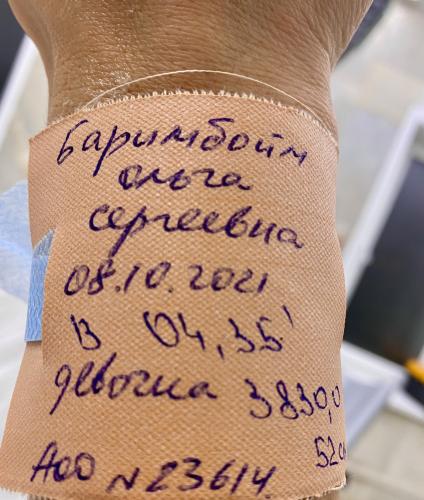 Баримбойм
ольга
сергеевна
08.10.2021
в 04,35'
девочка 3830,0
52с
АОО N23614